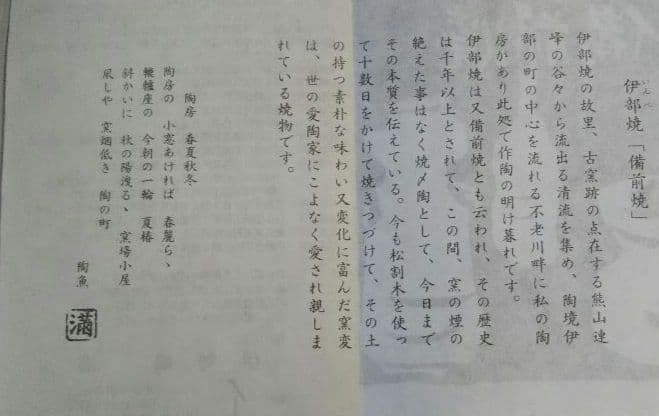 伊部焼「備前焼」
いんべ
伊部焼の故里、古窯跡の点在する熊山連
峰の谷々から流出る清流を集め、陶境伊
部の町の中心を流れる不老川畔に私の陶
房があり此処で作陶の明け暮れです。
伊部焼は又備前焼とも云われ、その歴史
は千年以上とされて、この間、窯の煙の
絶えた事はなく焼〆陶として、今日まで
その本質を伝えている。今も松割木を使っ
て十数日をかけて焼きつづけて、その土
の持つ素朴な味わい又変化に富んだ窯変
は、世の愛陶家にこよなく愛され親しま
れている焼物です。
陶房　春夏秋冬
陶房の　小窓あければ　春麗らゝ
轆轤座の　今朝の一輪　夏椿
斜かいに　秋の陽洩るゝ　窯場小屋
凩しや　窯烟低き　陶の町
陶魚
満